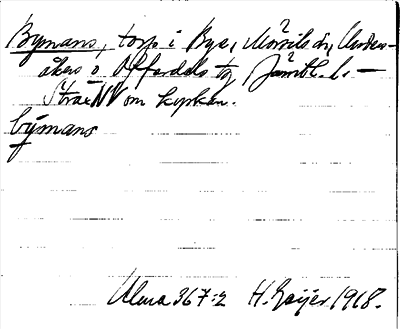 Bymans, torp i Bye, Mörsils sn, Unders-
åkers o. Offerdals tg Jämtl. l. —
Strax NV om kyrkan.
býmans
Ulma 367:2 H. Geijer 1918.